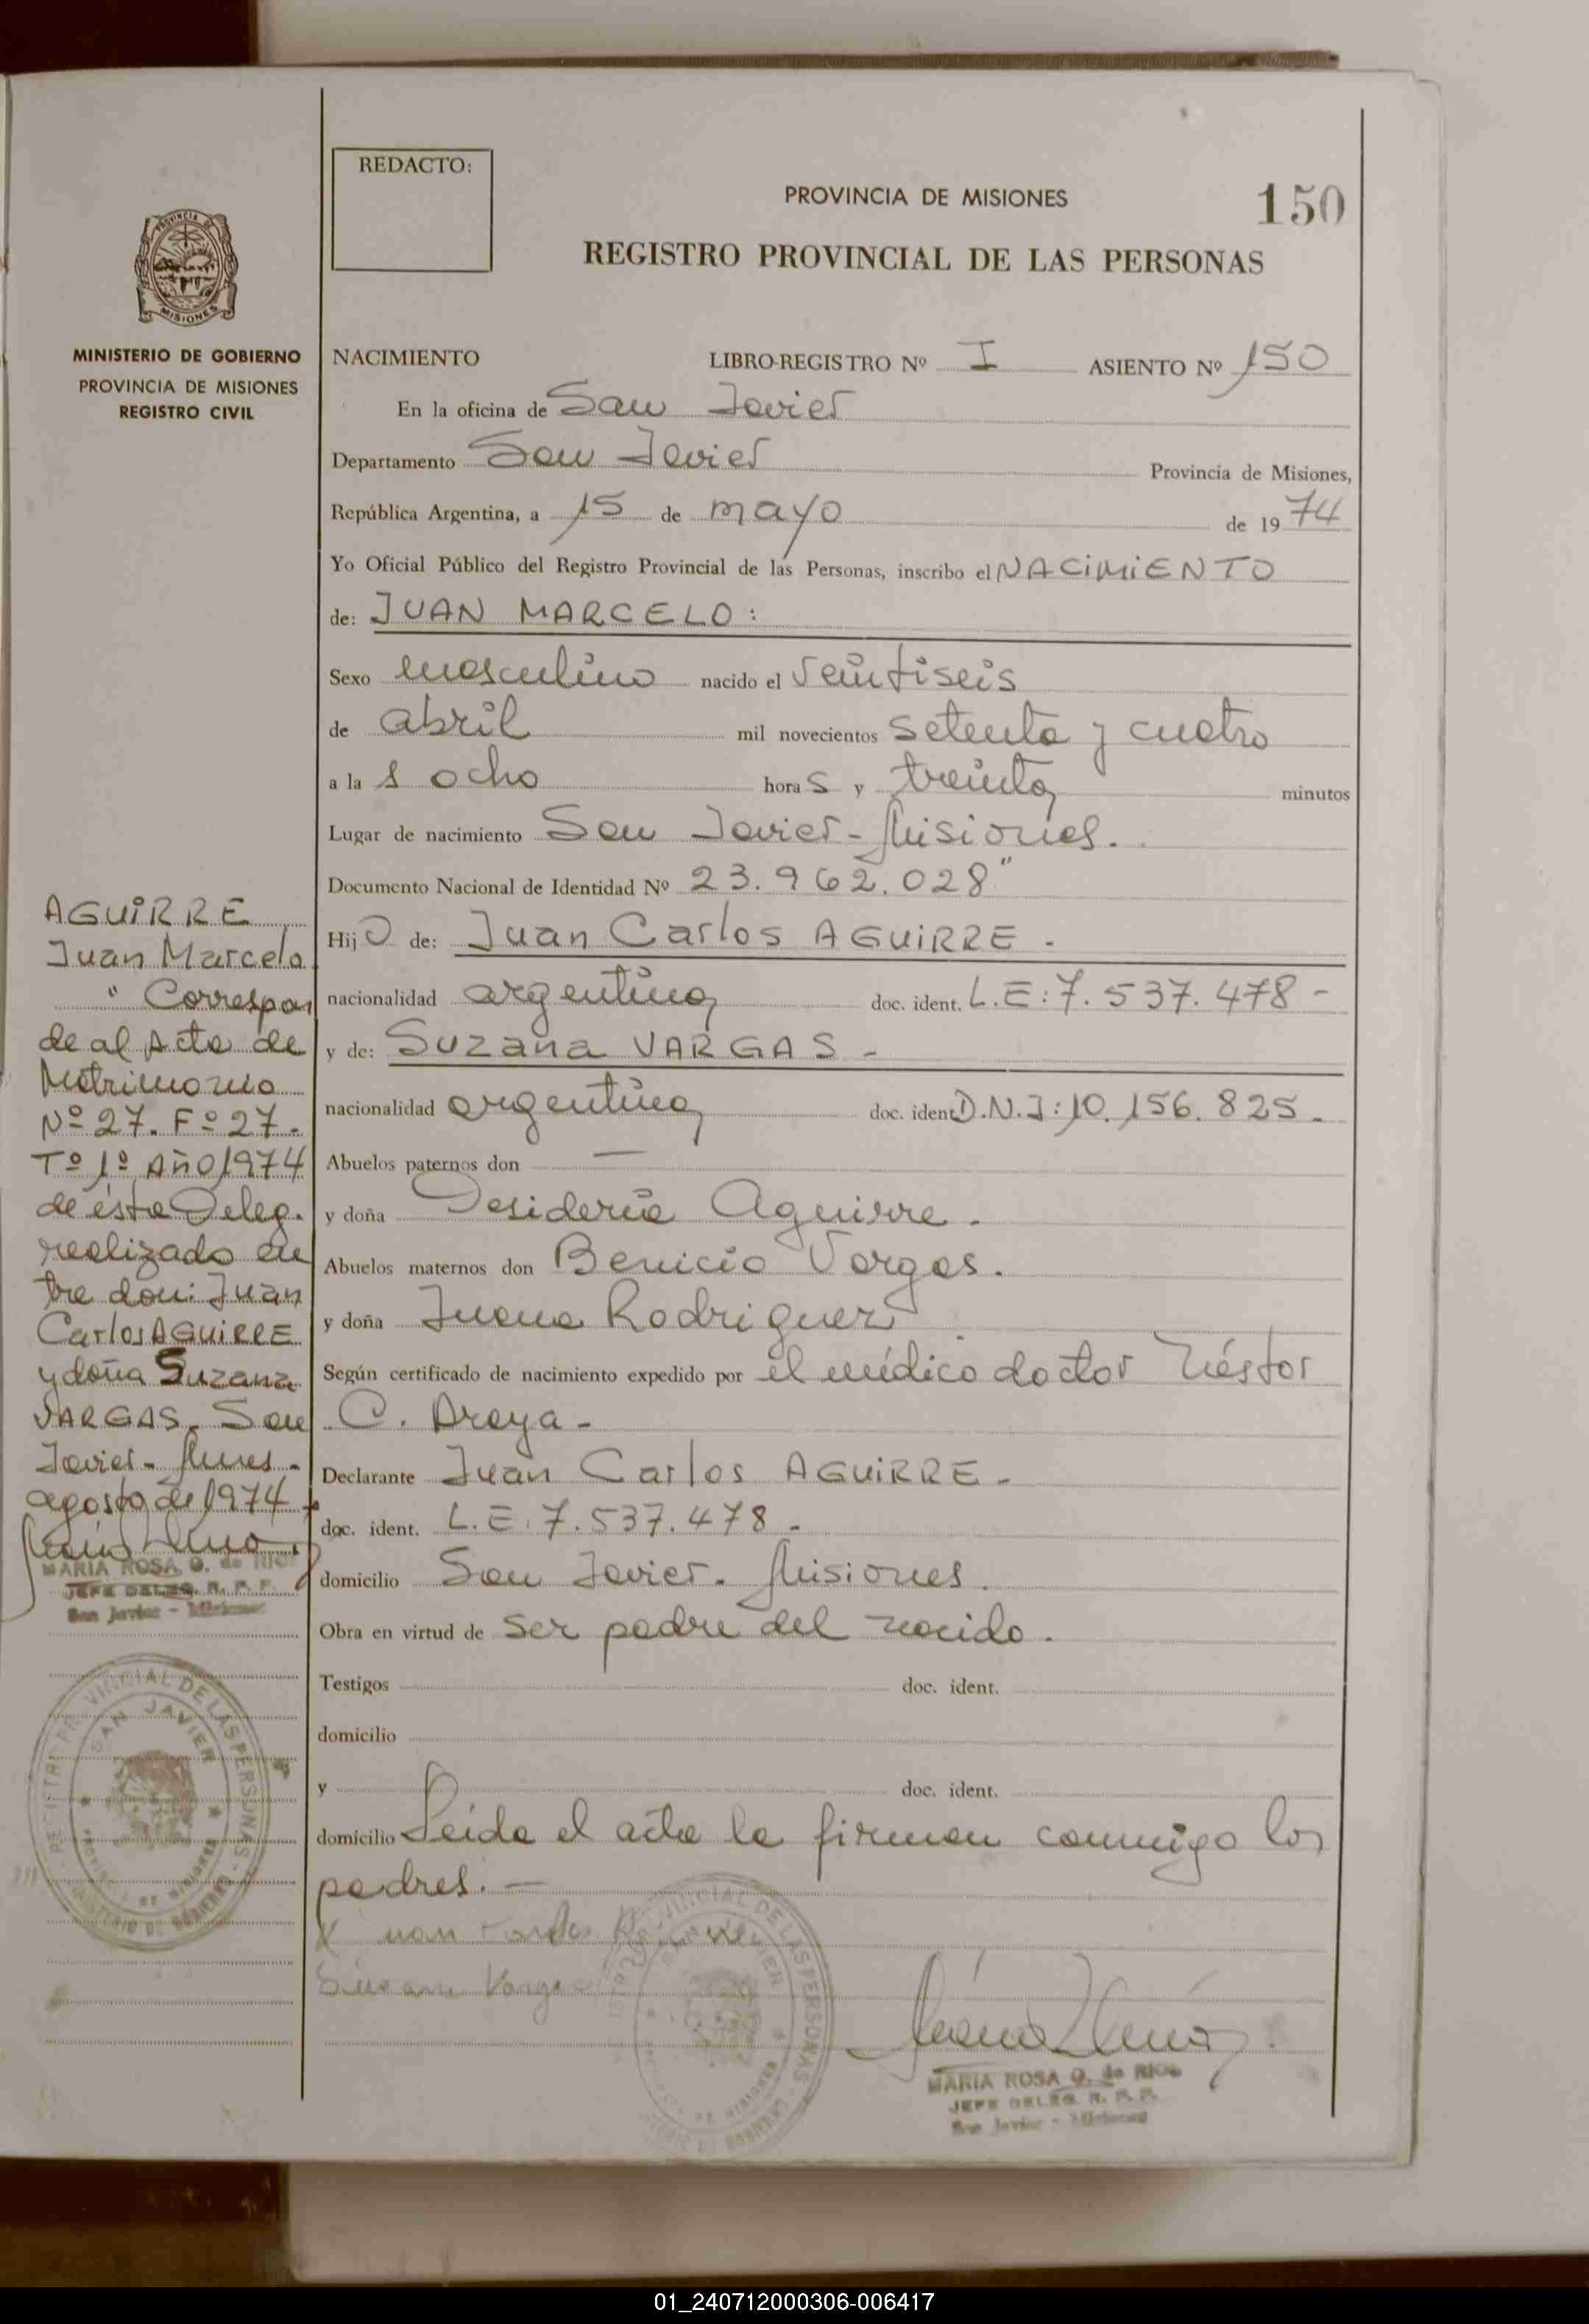 REDACTO:
PROVINCIA DE MISIONES
150
REGISTRO PROVINCIAL DE LAS PERSONAS
PROVINCIA DE
MISIONES
MINISTERIO DE GOBIERNO
PROVINCIA DE MISIONES
REGISTRO CIVIL
NACIMIENTO LIBRO-REGISTRO Nº I ASIENTO Nº 150
En la oficina de San Javier
Departamento San Javier Provincia de Misiones,
República Argentina, a 15 de mayo de 1974
Yo Oficial Público del Registro Provincial de las Personas, inscribo el NACIMIENTO
de: JUAN MARCELO:
Sexo masculino nacido el veintiseis
de abril mil novecientos setenta y cuatro
a las ocho horas y treinta minutos
Lugar de nacimiento San Javier - Misiones.
Documento Nacional de Identidad Nº 23.962.028"
Hijo de: Juan Carlos AGUIRRE -
nacionalidad argentina doc. ident. L.E: 7.537.478 -
y de: Suzana VARGAS -
nacionalidad argentina doc. ident D.N.I: 10.156.825.
Abuelos paternos don —
y doña Desideria Aguirre.
Abuelos maternos don Benicio Vargas.
y doña Juana Rodriguez
Según certificado de nacimiento expedido por el médico doctor Néstor
C. Araya -
Declarante Juan Carlos AGUIRRE -
doc. ident. L.E. 7.537.478 -
domicilio San Javier. Misiones.
Obra en virtud de ser padre del nacido.
Testigos doc. ident.
domicilio
y doc. ident.
domicilio Leida el acta la firman conmigo los
padres. —
Juan Carlos
Susana Vargas
MARIA ROSA O. de RIOS
JEFE DELEG. R. P. P.
San Javier - Misiones
AGUIRRE
Juan Marcelo
" Correspon
de al Acta de
Matrimonio
Nº 27. Fº 27.
Tº 1º Año 1974
de ésta Deleg.
realizado en
tre don: Juan
Carlos AGUIRRE
y doña Suzana
VARGAS. San
Javier - Mnes.
agosto de 1974
MARIA ROSA O. de RIOS
JEFE DELEG. R. P. P.
San Javier - Misiones
REGISTRO PROVINCIAL DE LAS PERSONAS
SAN JAVIER
PROVINCIA DE MISIONES
MINISTERIO DE GOBIERNO
PROVINCIAL DE LAS PERSONAS
01_240712000306-006417